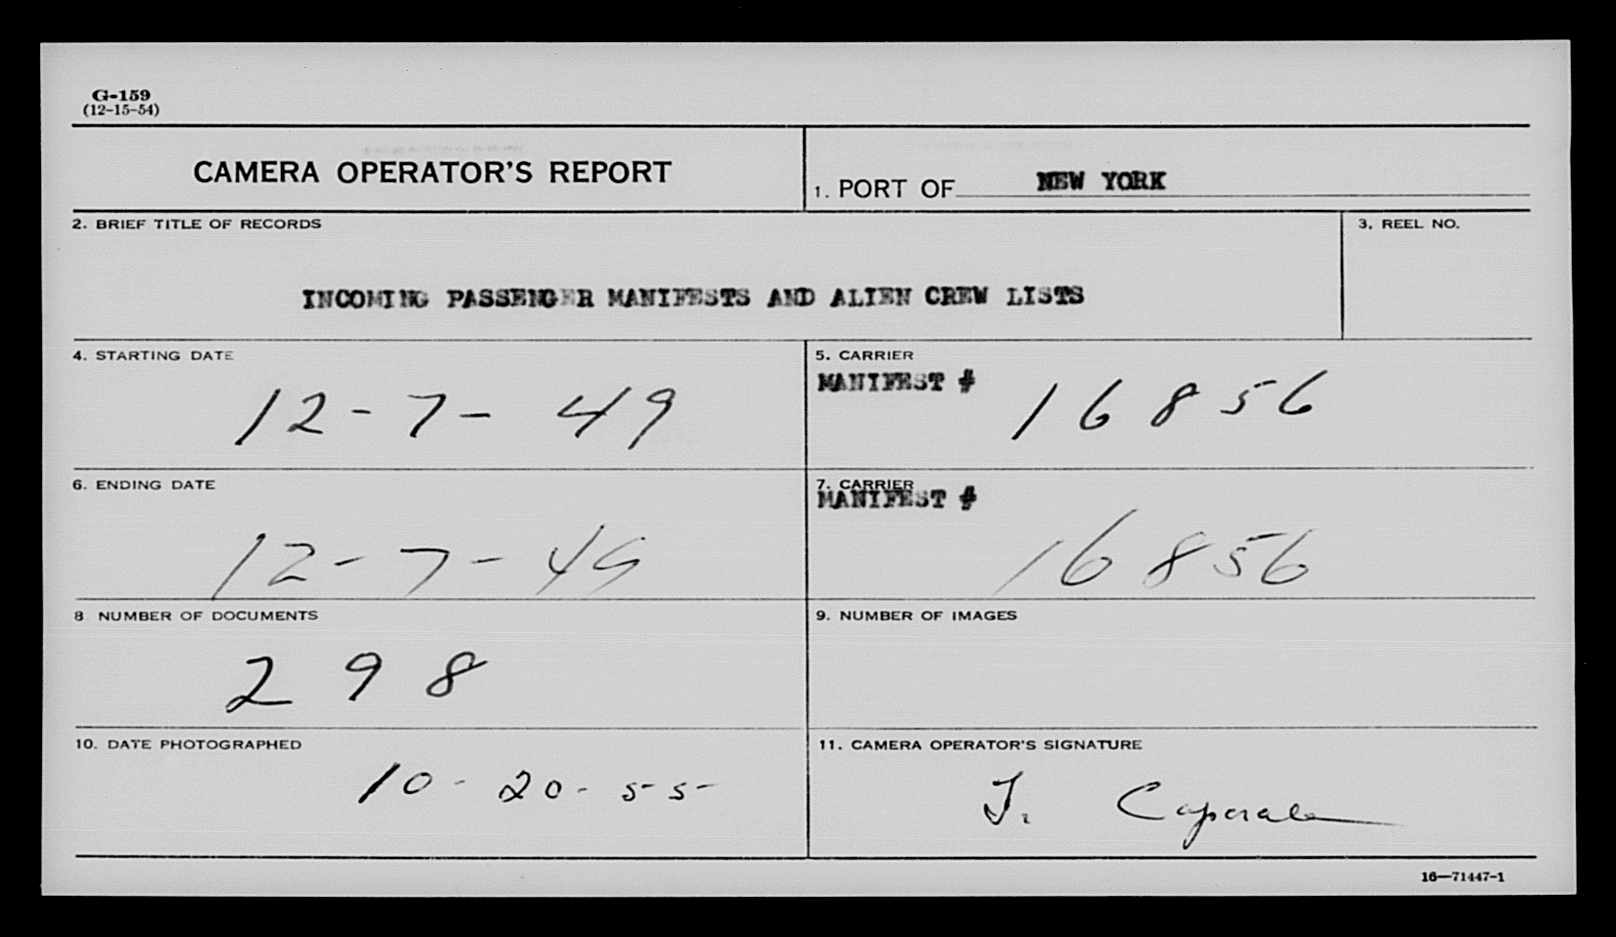 G-159
(12-15-54)
CAMERA OPERATOR'S REPORT
1. PORT OF NEW YORK
2. BRIEF TITLE OF RECORDS
3. REEL NO.
INCOMING PASSENGER MANIFESTS AND ALIEN CREW LISTS
4. STARTING DATE
12-7-49
5. CARRIER
MANIFEST # 16856
6. ENDING DATE
12-7-49
7. CARRIER
MANIFEST # 16856
8 NUMBER OF DOCUMENTS
298
9. NUMBER OF IMAGES
10. DATE PHOTOGRAPHED
10-20-55
11. CAMERA OPERATOR'S SIGNATURE
J. Caporale
16—71447-1